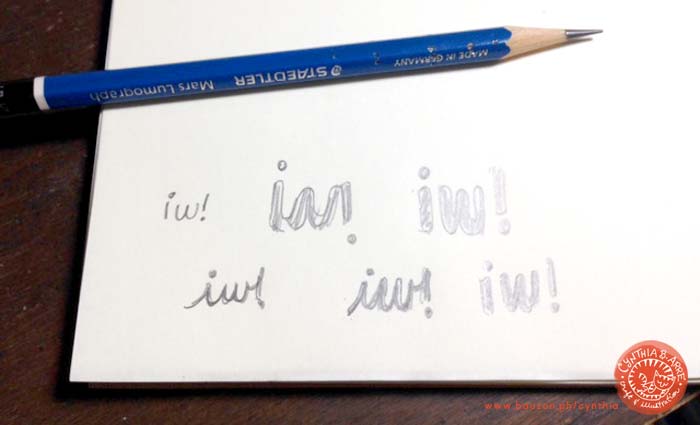 MADE IN GERMANY
STAEDTLER
Mars Lumograph
iw! iw! iw!
iw! iw! iw!
CYNTHIA B. ARRE
www.bauzon.ph/cynthia